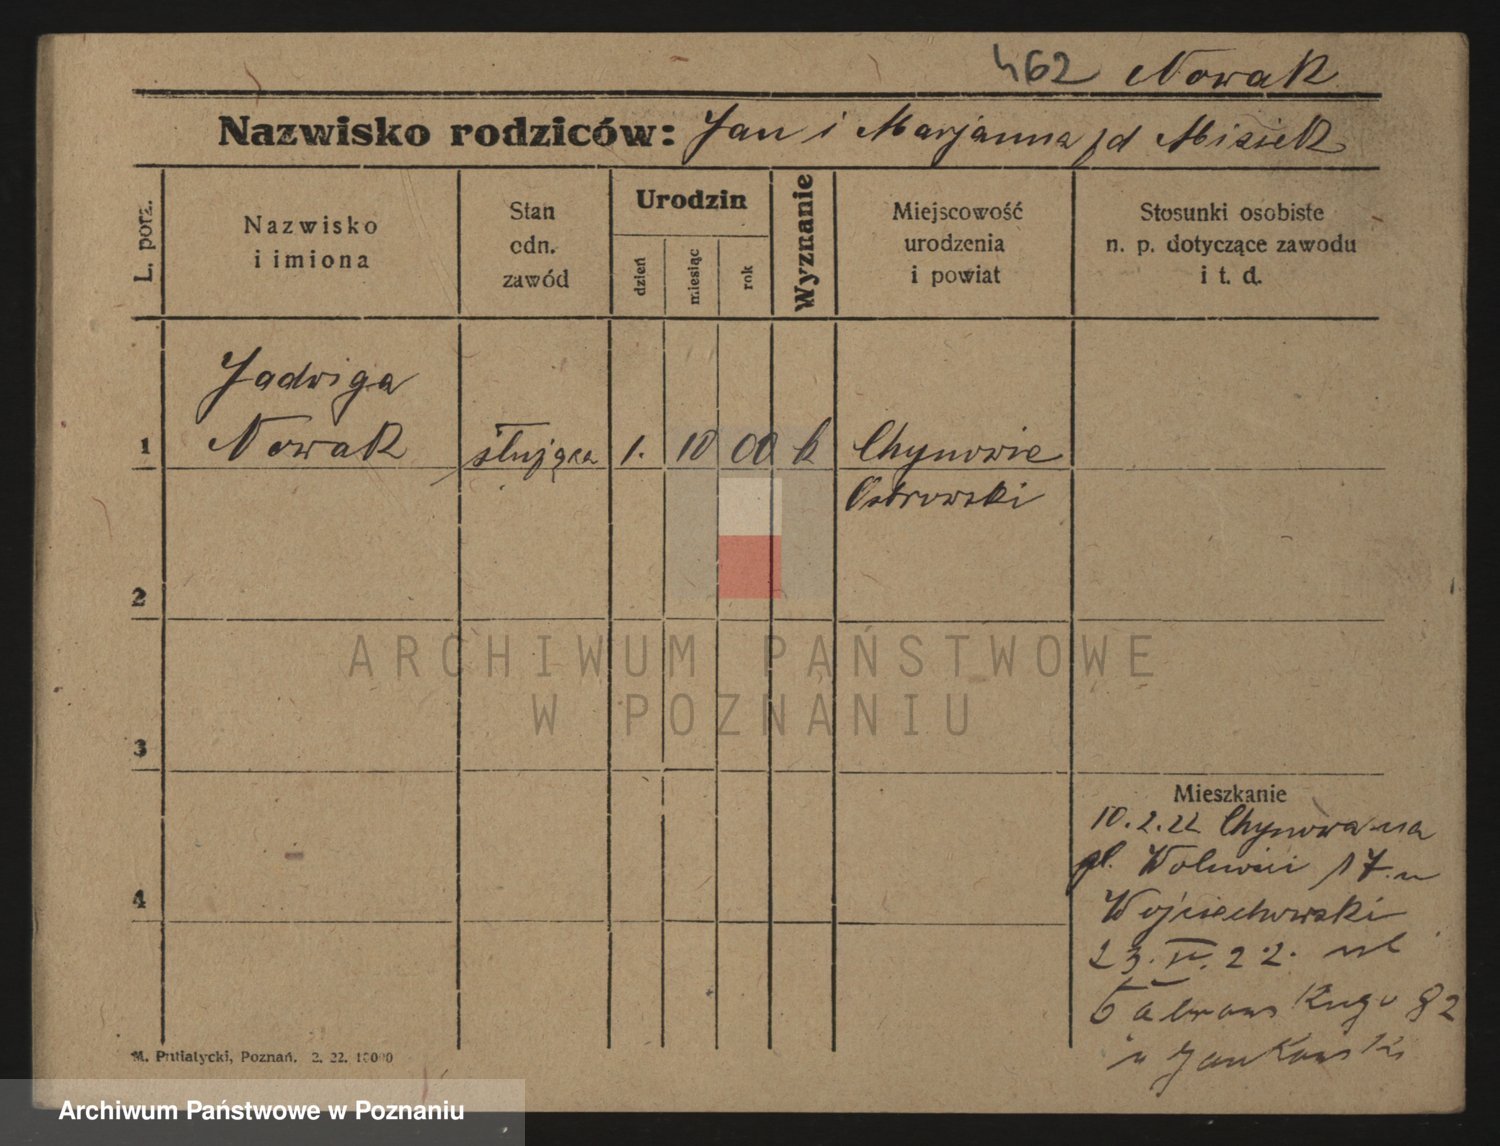 462 Nowak
Nazwisko rodziców: Jan i Marjanna zd Misiek
L. porz.
Nazwisko
i imiona
Stan
cdn.
zawód
Urodzin
dzień
miesiąc
rok
Wyznanie
Miejscowość
urodzenia
i powiat
Stosunki osobiste
n. p. dotyczące zawodu
i t. d.
Jadwiga
1 Nowak służąca 1. 10 00 k Chynowie
Ostrowski
2
ARCHIWUM PAŃSTWOWE
W POZNANIU
3
Mieszkanie
10.2.22 Chynowa na
pl. Wolności 17. u
4
Wojciechowski
23. IV. 22. ul
82
u Jankowski
M. Putiatycki, Poznań. 2. 22. 10000
Archiwum Państwowe w Poznaniu